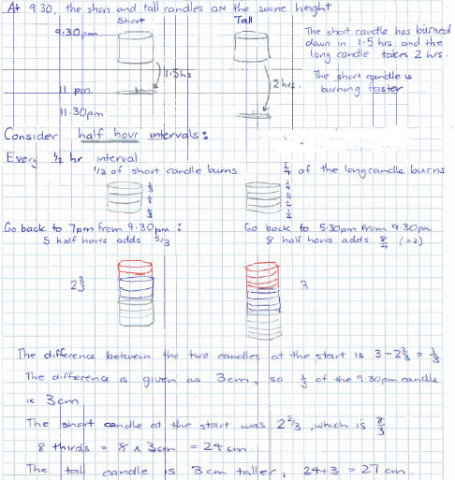 At 9.30, the short and tall candles are the same height
Short
Tall
9.30pm
The short candle has burned
down in 1.5 hrs and the
long candle takes 2 hrs.
1.5hs
2 hrs.
The short candle is
burning faster
11 pm
11.30pm
Consider half hour intervals:
Every 1/2 hr interval
1/3 of short candle burns
1/4 of the long candle burns
1/3
1/3
1/3
1/4
1/4
1/4
1/4
Go back to 7pm from 9.30pm:
5 half hours adds 5/3
Go back to 5.30pm from 9.30pm
8 half hours adds 8/4 (=2)
2 2/3
3
The difference between the two candles at the start is 3 - 2 2/3 = 1/3
The difference is given as 3cm, so 1/3 of the 9.30pm candle
is 3cm
The short candle at the start was 2 2/3, which is 8/3
8 thirds = 8 x 3cm = 24 cm
The tall candle is 3cm taller, 24+3 = 27 cm.